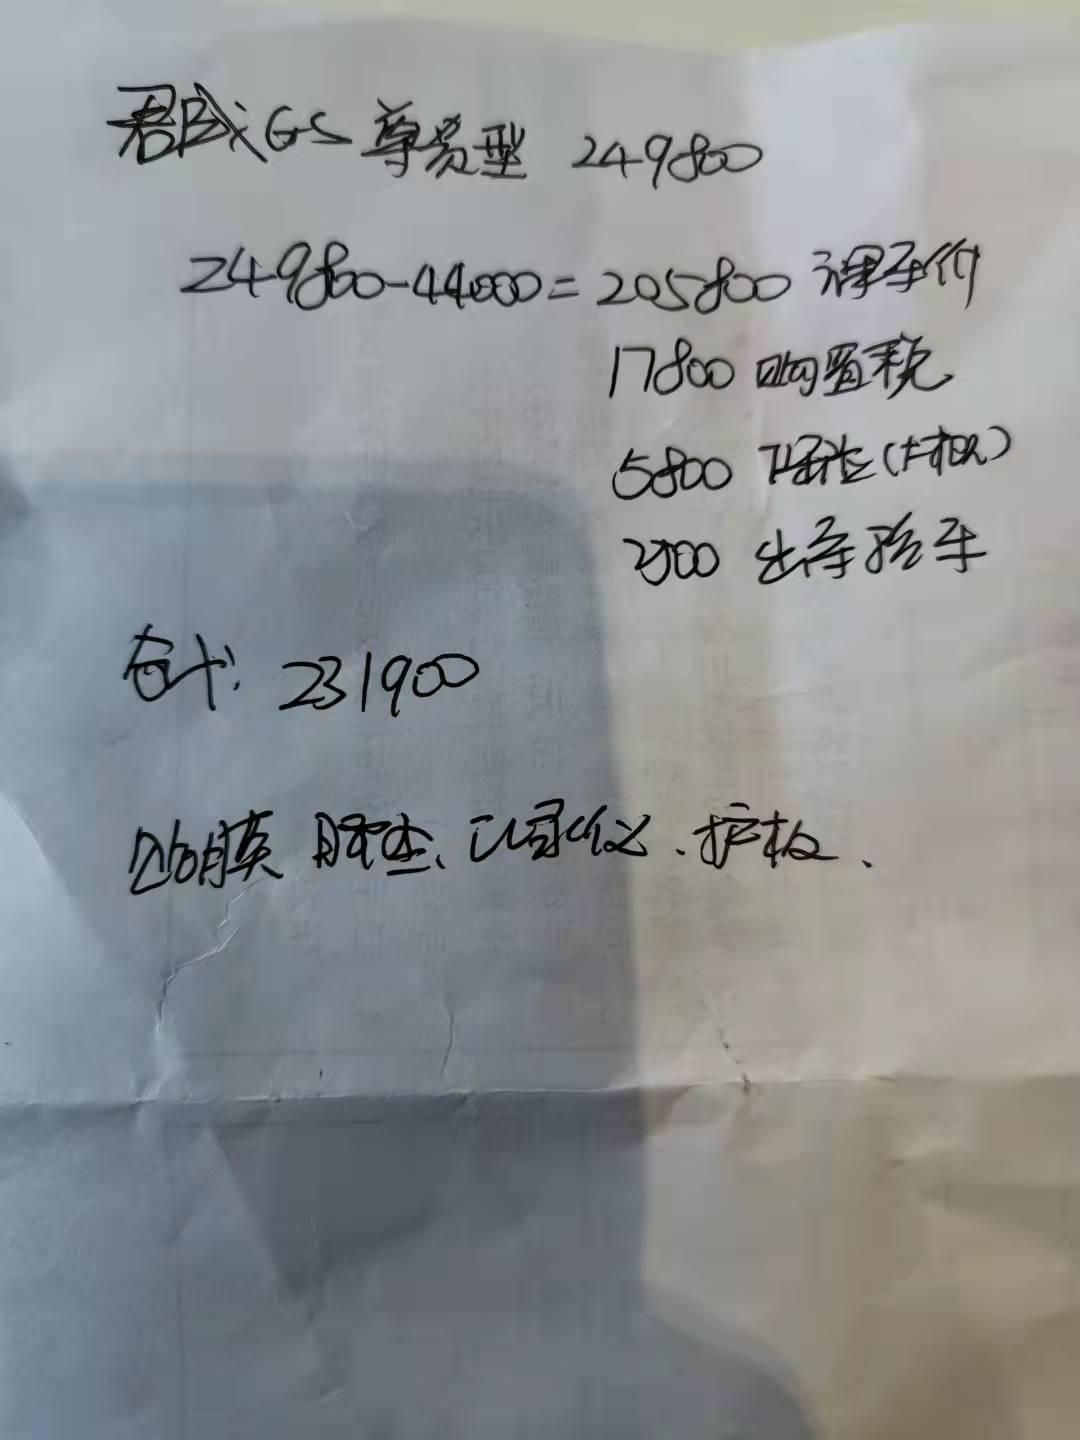 君威GS 尊贵型 249800
249800-44000=205800 裸车价
17800 购置税
5800 保险(太保)
2500 出库验车
合计: 231900
贴膜 脚垫、记录仪、护板、